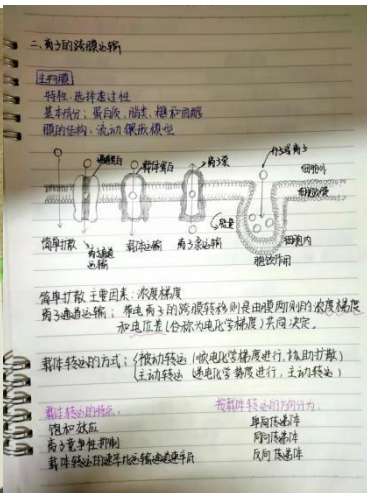 二、离子的跨膜运输
生物膜
特性：选择透过性
基本成分：蛋白质、脂类、糖和固醇
膜的结构：流动镶嵌模型
通道蛋白
载体蛋白
离子泵
分子或离子
细胞外
细胞质膜
能量
细胞内
简单扩散
离子通道运输
载体运输
离子泵运输
胞饮作用
简单扩散 主要因素：浓度梯度
离子通道运输：带电离子的跨膜转移则是由膜两侧的浓度梯度
和电位差（合称为电化学梯度）共同决定。
载体转运的方式：被动转运（顺电化学梯度进行，协助扩散）
主动转运（逆电化学梯度进行，主动转运）
载体转运的特点：
饱和效应
离子竞争性抑制
载体转运的速率比运输通道速率后
按载体转运的方向分为：
单向传递体
同向传递体
反向传递体